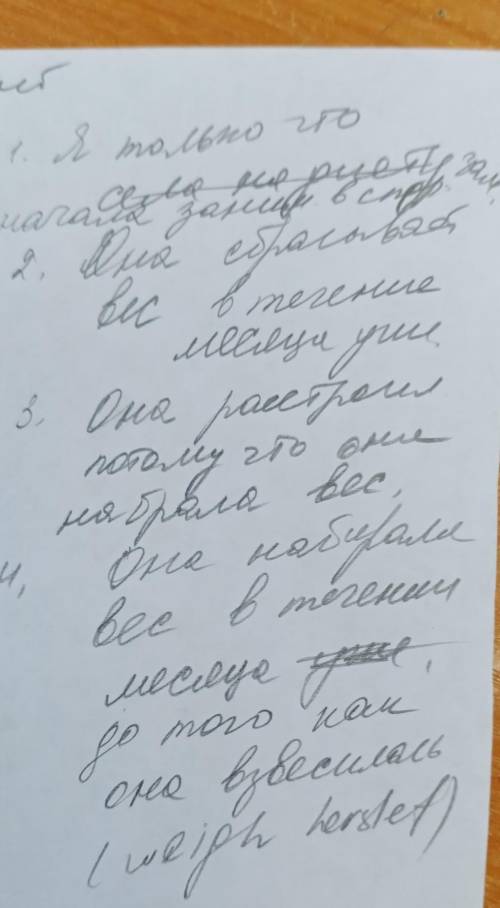 1. Я только что
села на диету
начала заним в спор. зал,
2. Она сбрасывает
вес в течение
месяца уже
3. Она расстроил
потому что она
набрала вес.
Она набирала
вес в течении
месяца уже,
до того как
она взвесилась
(weigh herslef)